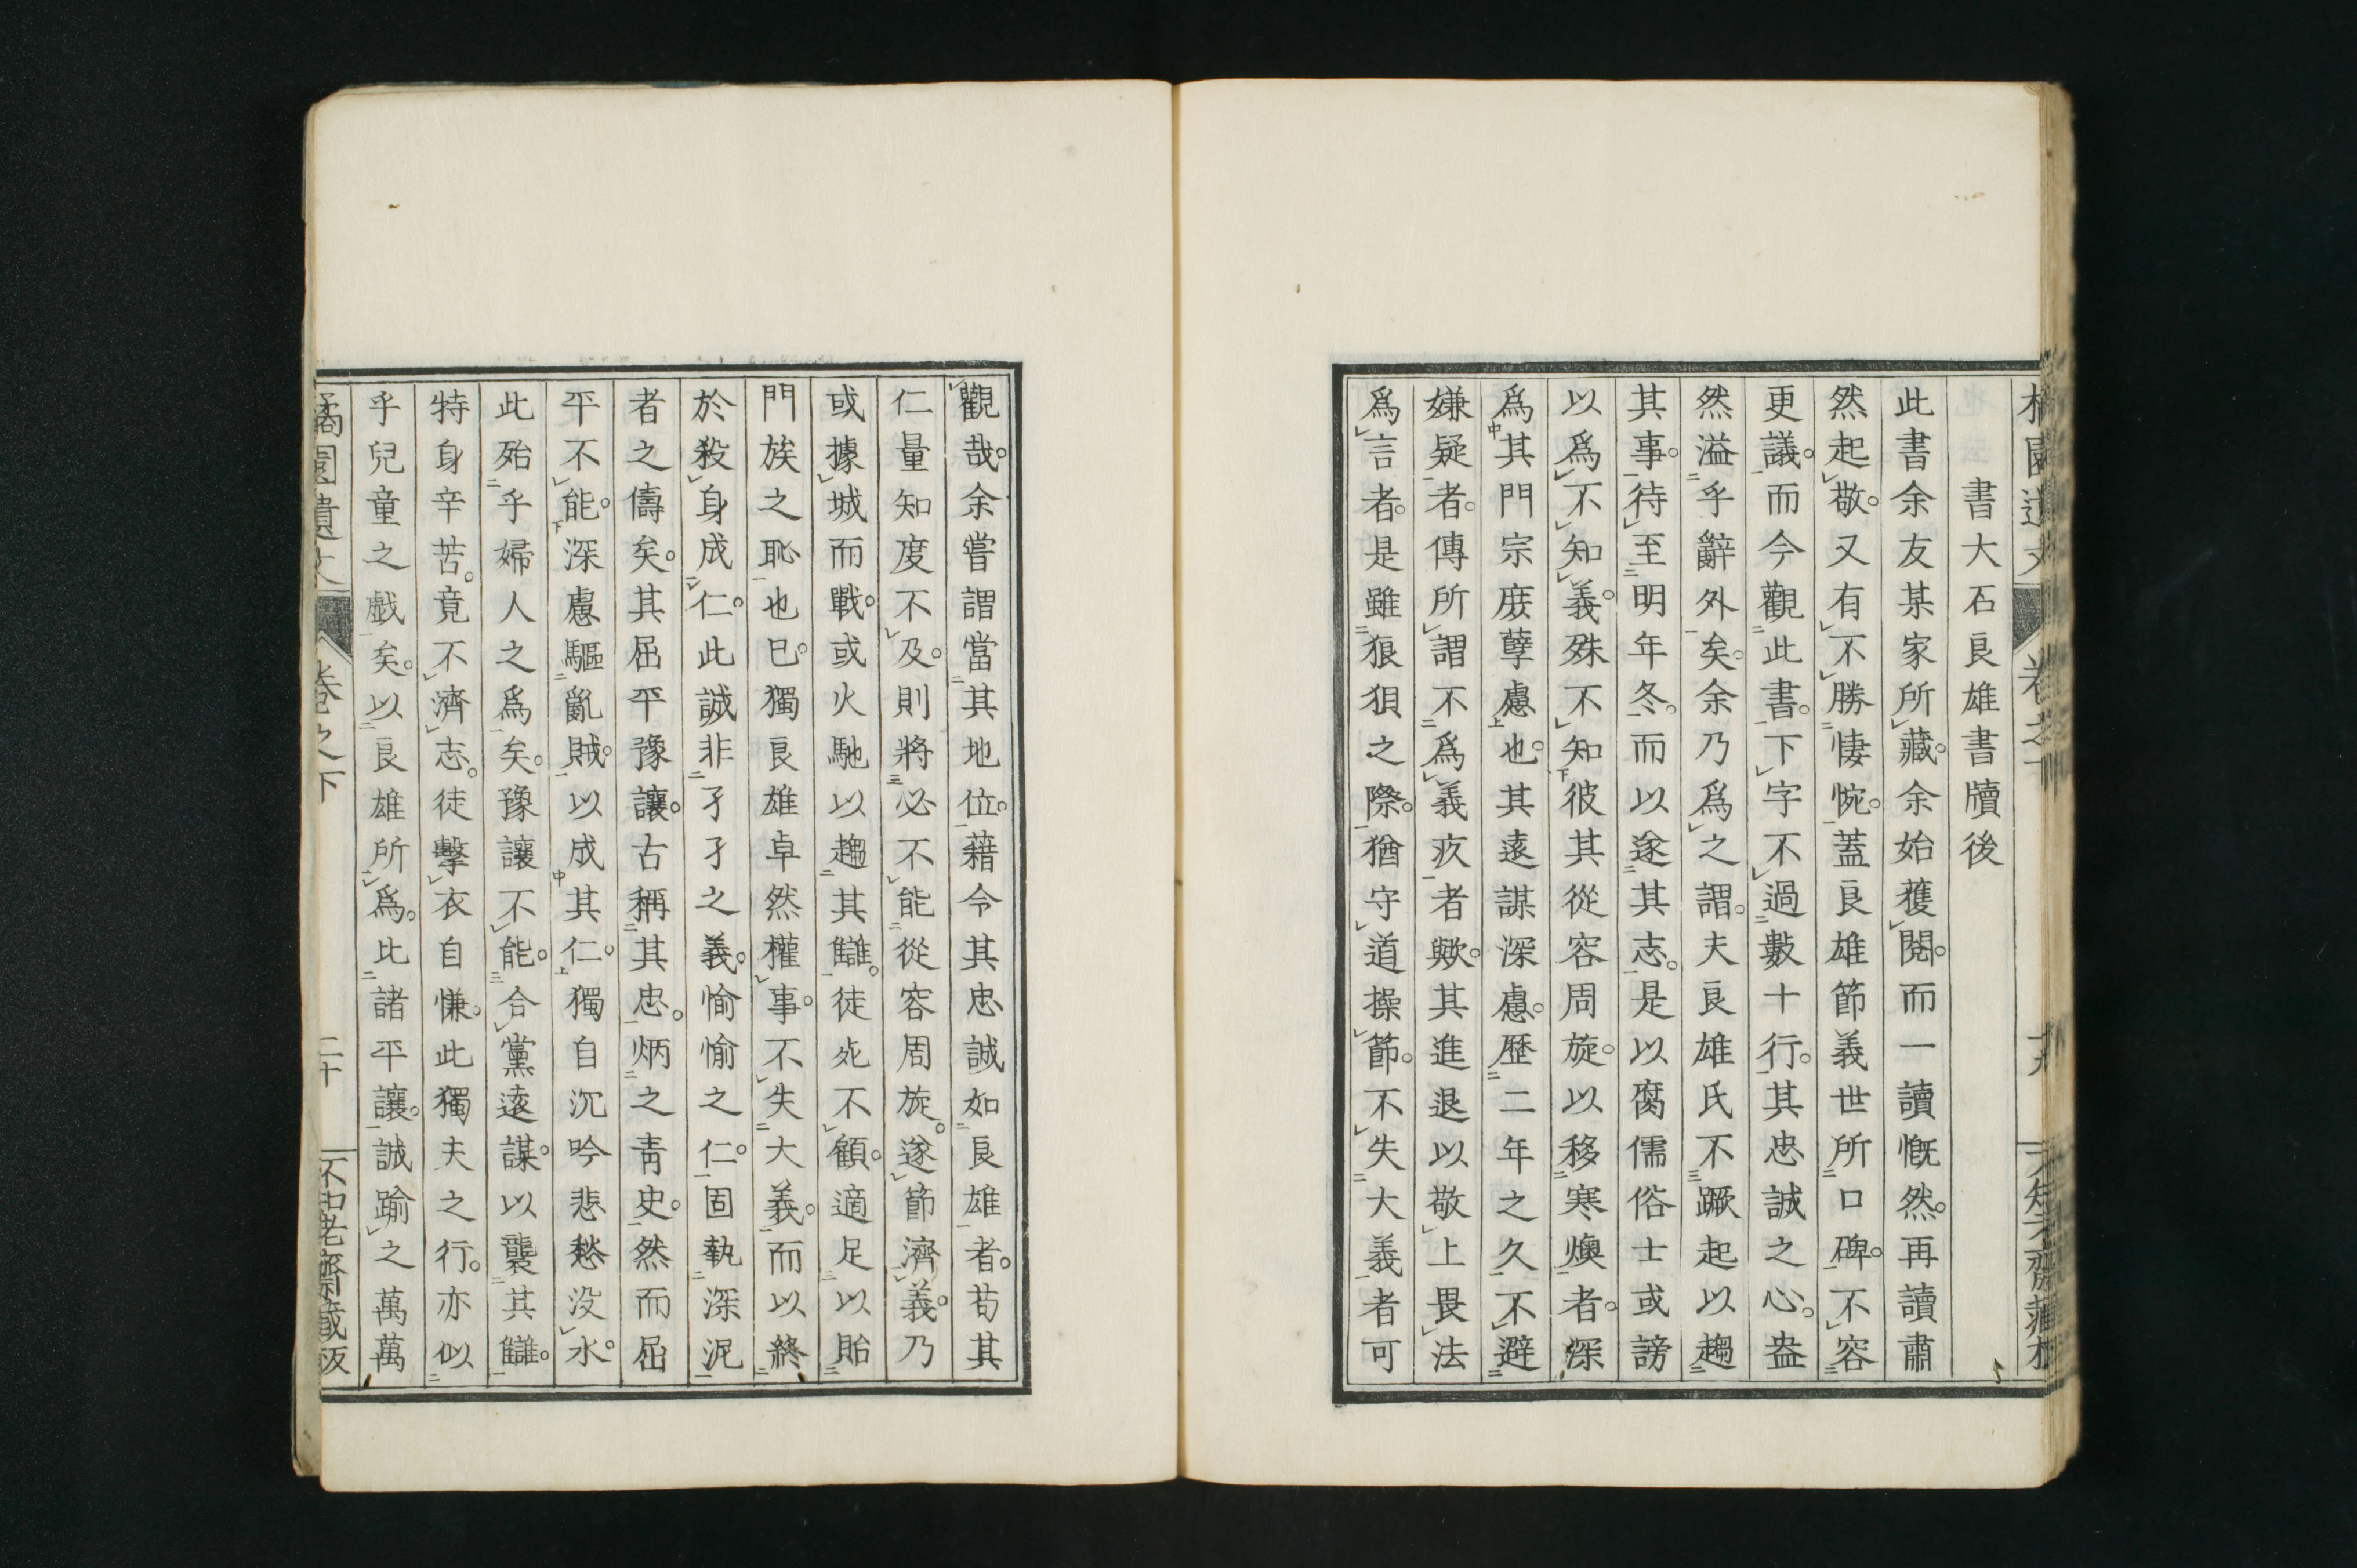 書大石良雄書牘後
此書余友某家所藏。余始獲閱。而一讀慨然。再讀肅
然起敬。又有不勝悽惋。蓋良雄節義世所口碑。不容
更議。而今觀此書。下字不過數十行。其忠誠之心。盎
然溢乎辭外矣。余乃爲之謂。夫良雄氏不蹶起以趨
其事。待至明年冬。而以遂其志。是以腐儒俗士或謗
以爲不知義。殊不知彼其從容周旋。以移寒燠者。深
爲其門宗庶孽慮也。其遠謀深慮。歷二年之久。不避
嫌疑者。傳所謂不爲義疚者歟。其進退以敬上畏法
爲言者。是雖狼狽之際。猶守道操節。不失大義者可
觀哉。余嘗謂當其地位。藉令其忠誠如良雄者。苟其
仁量知度不及。則將必不能從容周旋。遂節濟義。乃
或據城而戰。或火馳以趨其讎。徒死不顧。適足以貽
門族之恥也已。獨良雄卓然權事。不失大義。而以終
於殺身成仁。此誠非孑孑之義。愉愉之仁。固執深泥
者之儔矣。其屈平豫讓。古稱其忠。炳之青史。然而屈
平不能。深慮驅亂賊。以成其仁。獨自沉吟悲愁沒水。
此殆乎婦人之爲矣。豫讓不能。合黨遠謀。以襲其讎。
特身辛苦。竟不濟志。徒擊衣自慊。此獨夫之行。亦似
乎兒童之戲矣。以良雄所爲。比諸平讓。誠踰之萬萬
橘園遺文
卷之下
二十